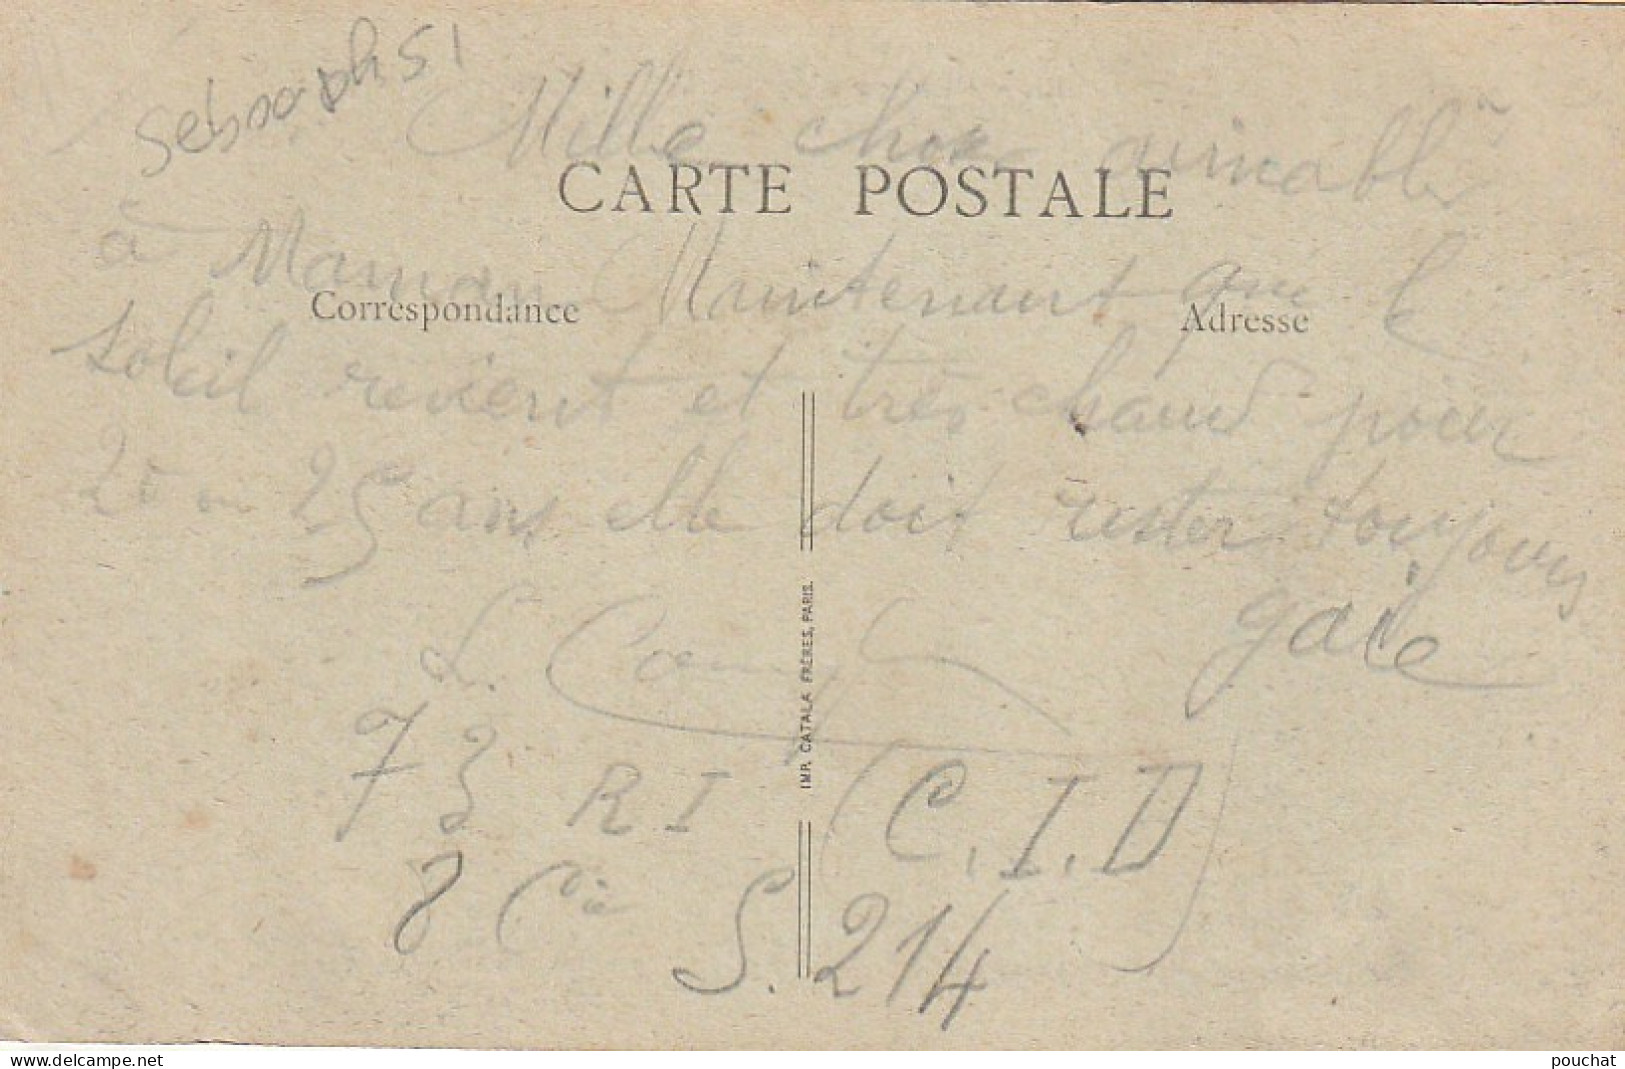 Mille choses aimables
CARTE POSTALE
à Maman Maintenant que le
Correspondance
Adresse
soleil revient et très chaud pour
20 ou 25 ans elle doit rester toujours
gaie
IMP. CATALA FRÈRES, PARIS.
L.
73 RI (C.I.D)
8 Cie
S. 214
delcampe.net
pouchat